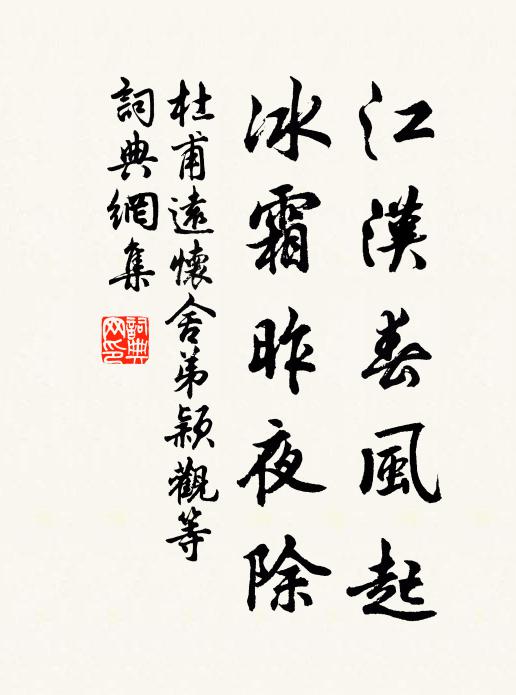 江漢春風起
冰霜昨夜除
杜甫遠懷舍弟穎觀等
詞典網集
詞典网印